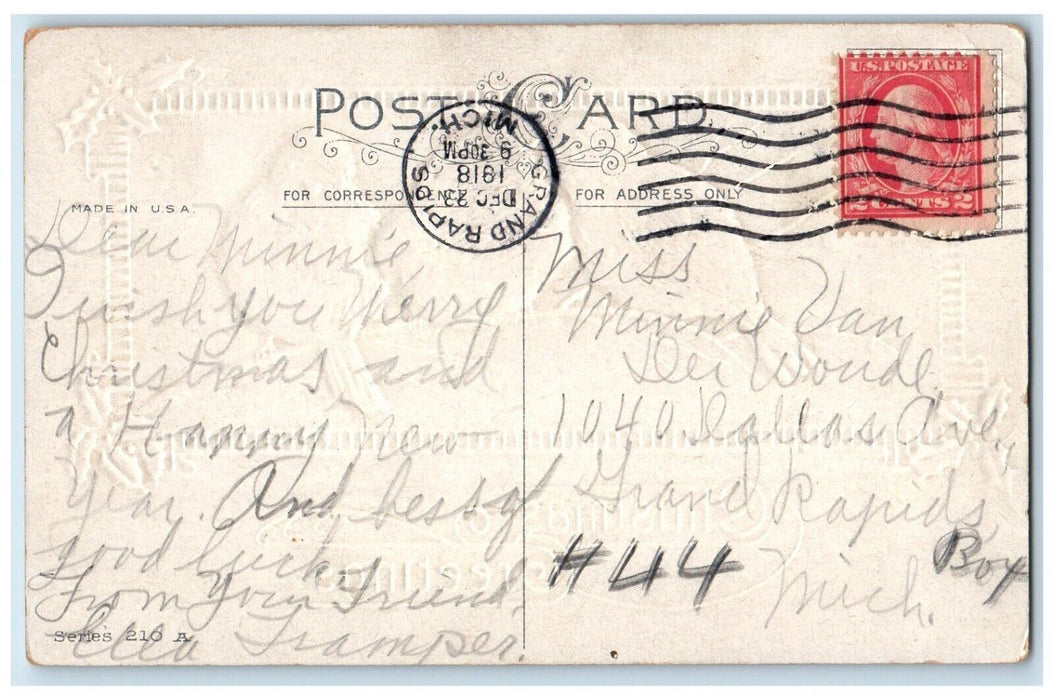 POST CARD
FOR CORRESPONDENCE
FOR ADDRESS ONLY
MADE IN U.S.A.
GRAND RAPIDS
MICH.
DEC 23
9 30PM
1918
U.S. POSTAGE
2 CENTS 2
Dear Minnie,
I wish you Merry
Christmas and
a Happy New
Year. And best of
good luck.
From Your Friend
Tramper.
Series 210 A
Miss
Minnie Van
Der Woude
1040 Dallas Ave.,
Grand Rapids,
Mich.
#44
Box
Christmas
Greetings